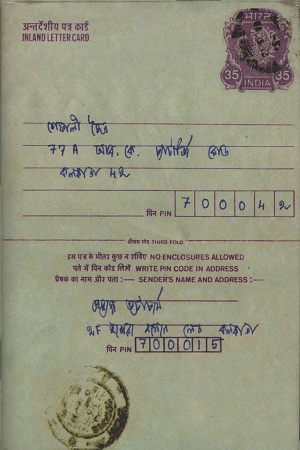 अन्तर्देशीय पत्र कार्ड
INLAND LETTER CARD
भारत
35 35
INDIA
শেফালী মৈত্র
77A আর. কে. চ্যাটার্জি রোড
কলকাতা 42
पिन PIN 700042
तीसरा मोड़ THIRD FOLD
इस पत्र के भीतर कुछ न रखिए NO ENCLOSURES ALLOWED
पते में पिन कोड लिखें WRITE PIN CODE IN ADDRESS
प्रेषक का नाम और पता :— SENDER'S NAME AND ADDRESS :—
ভট্টাচার্য
2F লেন কলকাতা
पिन PIN 700015